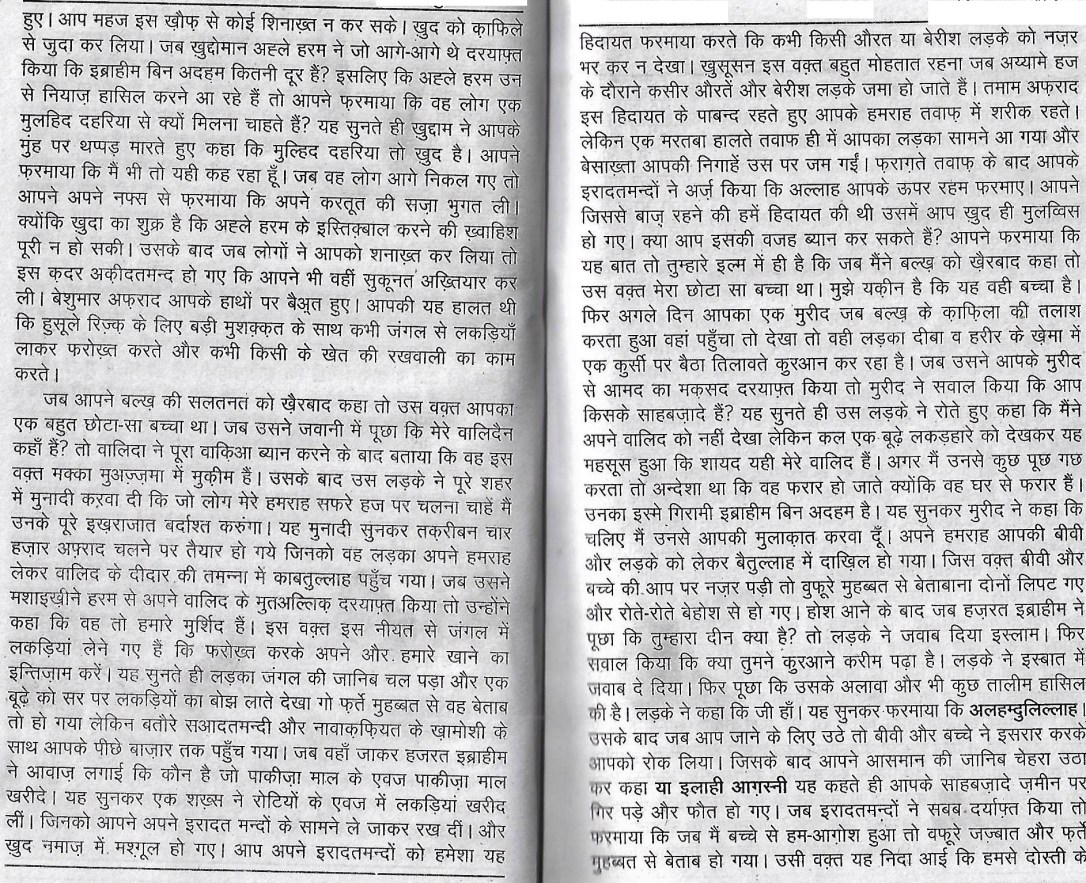 हुए। आप महज इस ख़ौफ़ से कोई शिनाख़्त न कर सके। खुद को काफ़िले
से जुदा कर लिया। जब खुद्दोमान अह्ले हरम ने जो आगे-आगे थे दरयाफ़्त
किया कि इब्राहीम बिन अदहम कितनी दूर हैं? इसलिए कि अह्ले हरम उन
से नियाज़ हासिल करने आ रहे हैं तो आपने फ़रमाया कि वह लोग एक
मुलहिद दहरिया से क्यों मिलना चाहते हैं? यह सुनते ही खुद्दाम ने आपके
मुंह पर थप्पड़ मारते हुए कहा कि मुल्हिद दहरिया तो ख़ुद है। आपने
फ़रमाया कि मैं भी तो यही कह रहा हूँ। जब वह लोग आगे निकल गए तो
आपने अपने नफ्स से फ़रमाया कि अपने करतूत की सज़ा भुगत ली।
क्योंकि खुदा का शुक्र है कि अह्ले हरम के इस्तिक़्बाल करने की ख़्वाहिश
पूरी न हो सकी। उसके बाद जब लोगों ने आपको शनाख़्त कर लिया तो
इस क़दर अक़ीदतमन्द हो गए कि आपने भी वहीं सुकूनत अख़्तियार कर
ली। बेशुमार अफ़राद आपके हाथों पर बैअ़त हुए। आपकी यह हालत थी
कि हुसूले रिज़्क़ के लिए बड़ी मुशक़्क़त के साथ कभी जंगल से लकड़ियाँ
लाकर फरोख़्त करते और कभी किसी के खेत की रखवाली का काम
करते।
जब आपने बल्ख़ की सलतनत को ख़ैरबाद कहा तो उस वक़्त आपका
एक बहुत छोटा-सा बच्चा था। जब उसने जवानी में पूछा कि मेरे वालिदैन
कहाँ हैं? तो वालिदा ने पूरा वाकिआ ब्यान करने के बाद बताया कि वह इस
वक़्त मक्का मुअज़्ज़मा में मुक़ीम हैं। उसके बाद उस लड़के ने पूरे शहर
में मुनादी करवा दी कि जो लोग मेरे हमराह सफरे हज पर चलना चाहें मैं
उनके पूरे इख़राजात बर्दाश्त करुंगा। यह मुनादी सुनकर तक़रीबन चार
हज़ार अफ़्राद चलने पर तैयार हो गये जिनको वह लड़का अपने हमराह
लेकर वालिद के दीदार की तमन्ना में काबतुल्लाह पहुँच गया। जब उसने
मशाइख़ीने हरम से अपने वालिद के मुतअल्लिक़ दरयाफ़्त किया तो उन्होंने
कहा कि वह तो हमारे मुर्शिद हैं। इस वक़्त इस नीयत से जंगल में
लकड़ियां लेने गए हैं कि फरोख़्त करके अपने और हमारे खाने का
इन्तिज़ाम करें। यह सुनते ही लड़का जंगल की जानिब चल पड़ा और एक
बूढ़े को सर पर लकड़ियों का बोझ लाते देखा गो फ़र्ते मुहब्बत से वह बेताब
तो हो गया लेकिन बतौरे सआदतमन्दी और नावाक़फ़ियत के ख़ामोशी के
साथ आपके पीछे बाज़ार तक पहुँच गया। जब वहाँ जाकर हजरत इब्राहीम
ने आवाज़ लगाई कि कौन है जो पाकीज़ा माल के एवज पाकीज़ा माल
खरीदे। यह सुनकर एक शख़्स ने रोटियों के एवज में लकड़ियां खरीद
लीं। जिनको आपने अपने इरादत मन्दों के सामने ले जाकर रख दीं। और
ख़ुद नमाज़ में मश्ग़ूल हो गए। आप अपने इरादतमन्दों को हमेशा यह
हिदायत फरमाया करते कि कभी किसी औरत या बेरीश लड़के को नज़र
भर कर न देखा। ख़ुसूसन इस वक़्त बहुत मोहतात रहना जब अय्यामे हज
के दौराने कसीर औरतें और बेरीश लड़के जमा हो जाते हैं। तमाम अफ़राद
इस हिदायत के पाबन्द रहते हुए आपके हमराह तवाफ़ में शरीक रहते।
लेकिन एक मरतबा हालते तवाफ़ ही में आपका लड़का सामने आ गया और
बेसाख़्ता आपकी निगाहें उस पर जम गईं। फ़राग़ते तवाफ़ के बाद आपके
इरादतमन्दों ने अर्ज़ किया कि अल्लाह आपके ऊपर रहम फरमाए। आपने
जिससे बाज़ रहने की हमें हिदायत की थी उसमें आप ख़ुद ही मुलव्विस
हो गए। क्या आप इसकी वजह ब्यान कर सकते हैं? आपने फरमाया कि
यह बात तो तुम्हारे इल्म में ही है कि जब मैंने बल्ख़ को ख़ैरबाद कहा तो
उस वक़्त मेरा छोटा सा बच्चा था। मुझे यक़ीन है कि यह वही बच्चा है।
फिर अगले दिन आपका एक मुरीद जब बल्ख़ के क़ाफ़िला की तलाश
करता हुआ वहां पहुँचा तो देखा तो वही लड़का दीबा व हरीर के ख़ेमा में
एक कुर्सी पर बैठा तिलावते कुरआन कर रहा है। जब उसने आपके मुरीद
से आमद का मक़सद दरयाफ़्त किया तो मुरीद ने सवाल किया कि आप
किसके साहबज़ादे हैं? यह सुनते ही उस लड़के ने रोते हुए कहा कि मैंने
अपने वालिद को नहीं देखा लेकिन कल एक बूढ़े लकड़हारे को देखकर यह
महसूस हुआ कि शायद यही मेरे वालिद हैं। अगर मैं उनसे कुछ पूछ गछ
करता तो अन्देशा था कि वह फरार हो जाते क्योंकि वह घर से फरार हैं।
उनका इस्मे गिरामी इब्राहीम बिन अदहम है। यह सुनकर मुरीद ने कहा कि
चलिए मैं उनसे आपकी मुलाक़ात करवा दूँ। अपने हमराह आपकी बीवी
और लड़के को लेकर बैतुल्लाह में दाख़िल हो गया। जिस वक़्त बीवी और
बच्चे की आप पर नज़र पड़ी तो वुफूरे मुहब्बत से बेताबाना दोनों लिपट गए
और रोते-रोते बेहोश से हो गए। होश आने के बाद जब हज़रत इब्राहीम ने
पूछा कि तुम्हारा दीन क्या है? तो लड़के ने जवाब दिया इस्लाम। फिर
सवाल किया कि क्या तुमने कुरआने करीम पढ़ा है। लड़के ने इस्बात में
जवाब दे दिया। फिर पूछा कि उसके अलावा और भी कुछ तालीम हासिल
की है। लड़के ने कहा कि जी हाँ। यह सुनकर फरमाया कि अलहम्दुलिल्लाह।
उसके बाद जब आप जाने के लिए उठे तो बीवी और बच्चे ने इसरार करके
आपको रोक लिया। जिसके बाद आपने आसमान की जानिब चेहरा उठा
कर कहा या इलाही आग़स्नी यह कहते ही आपके साहबज़ादे ज़मीन पर
गिर पड़े और फौत हो गए। जब इरादतमन्दों ने सबब दर्याफ़्त किया तो
फरमाया कि जब मैं बच्चे से हम-आगोश हुआ तो वफूरे जज़्बात और फ़र्ते
मुहब्बत से बेताब हो गया। उसी वक़्त यह निदा आई कि हमसे दोस्ती के